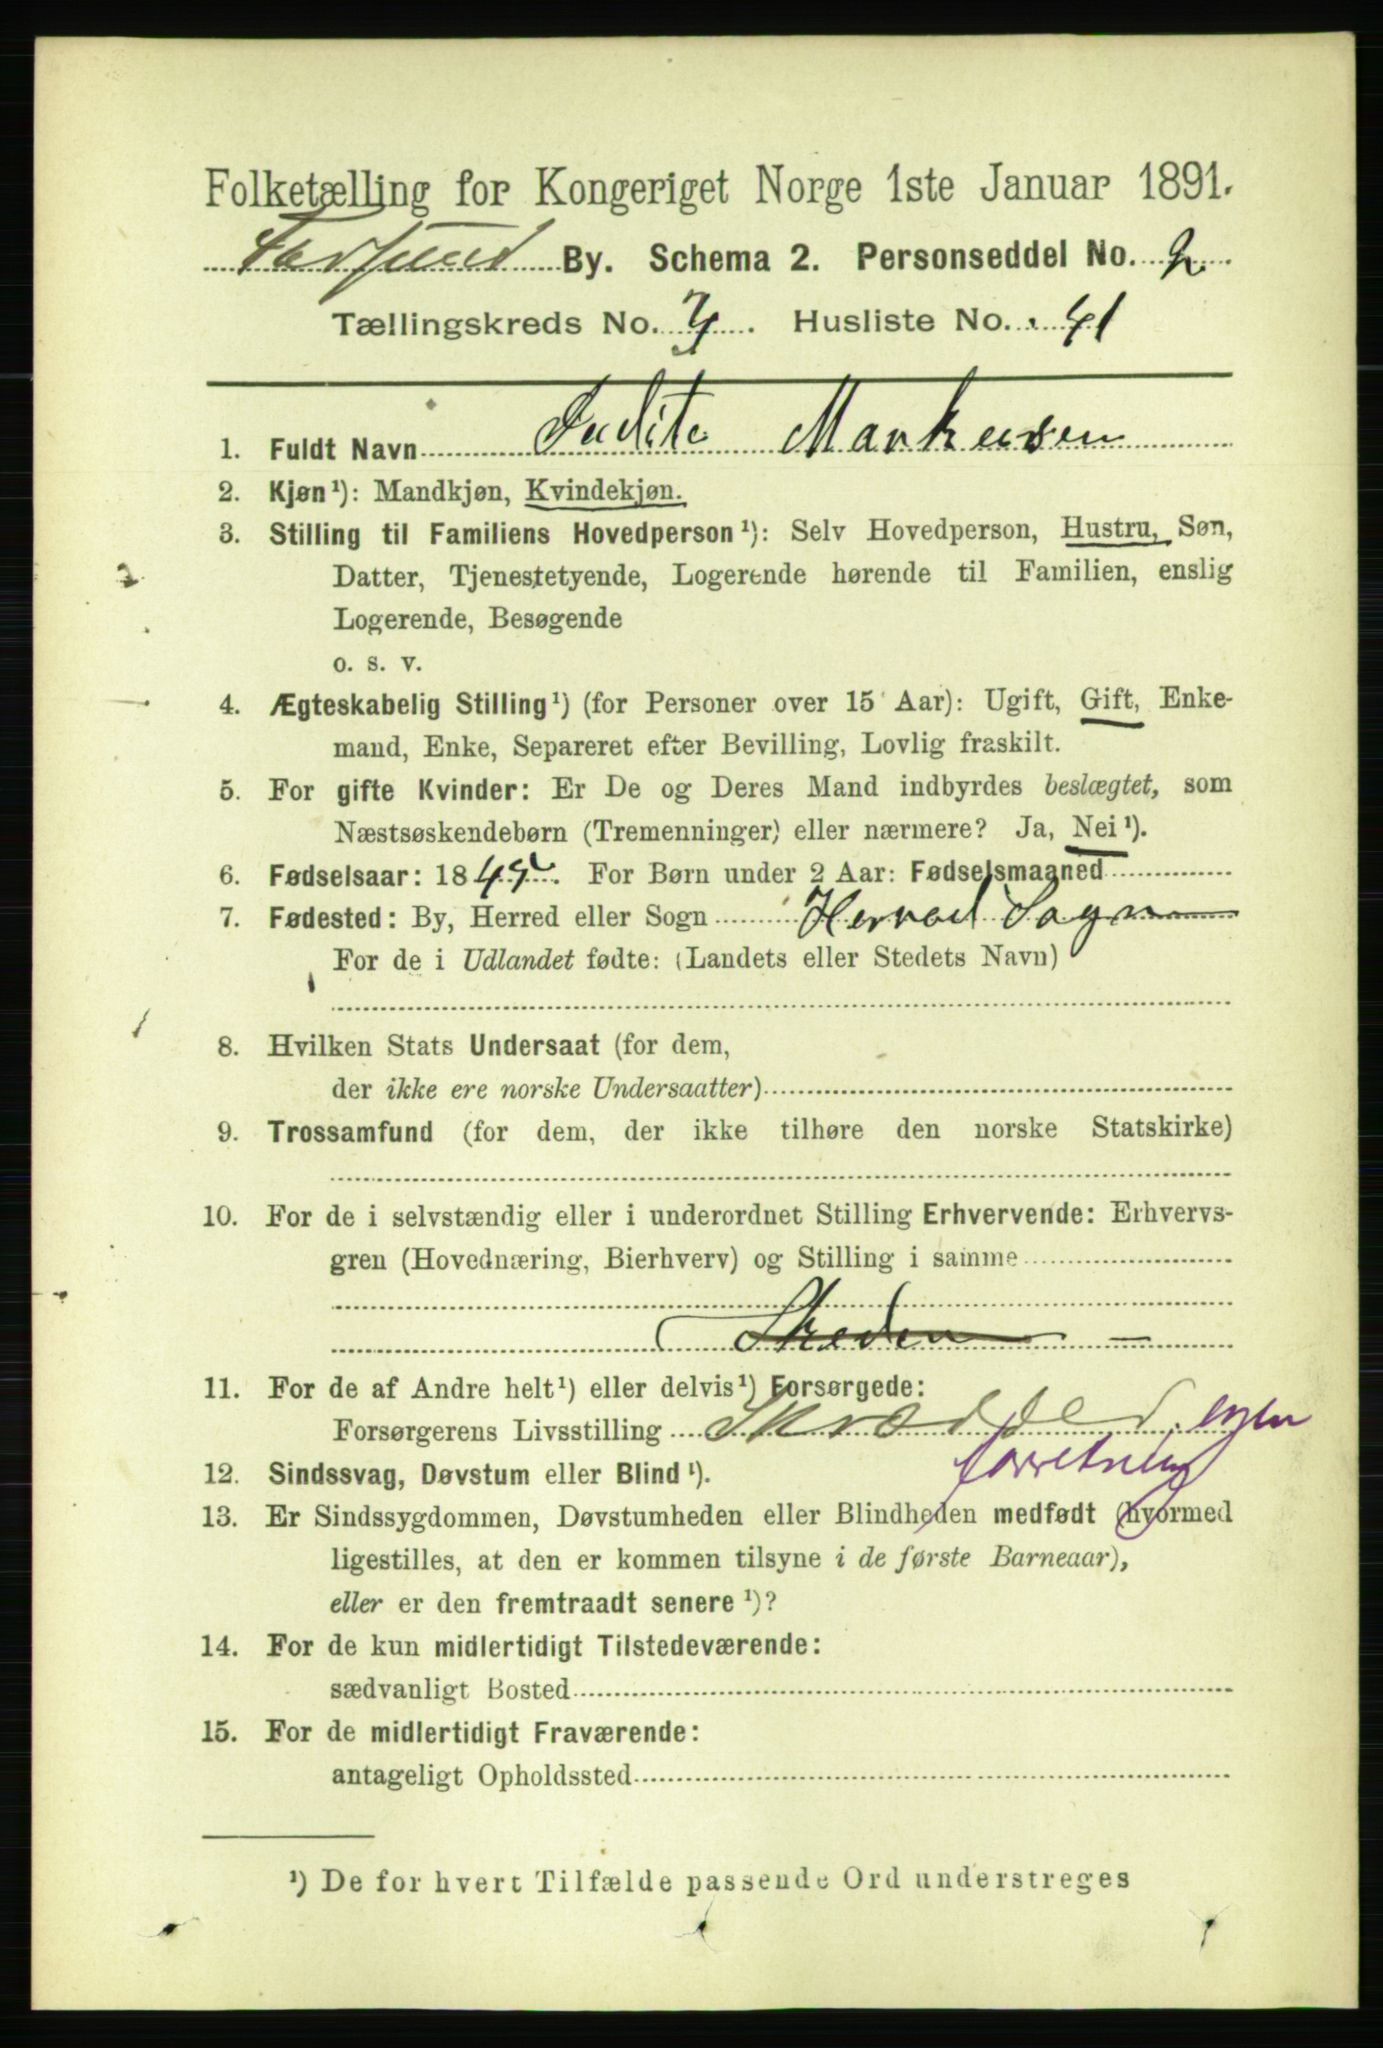 Folketælling for Kongeriget Norge 1ste Januar 1891.
Farsund By. Schema 2. Personseddel No. 2
Tællingskreds No. 3 . Husliste No. 41
1. Fuldt Navn Judite Markusen
2. Kjøn ¹): Mandkjøn, Kvindekjøn.
3. Stilling til Familiens Hovedperson ¹): Selv Hovedperson, Hustru, Søn,
Datter, Tjenestetyende, Logerende hørende til Familien, enslig
Logerende, Besøgende
o. s. v.
4. Ægteskabelig Stilling ¹) (for Personer over 15 Aar): Ugift, Gift, Enke-
mand, Enke, Separeret efter Bevilling, Lovlig fraskilt.
5. For gifte Kvinder: Er De og Deres Mand indbyrdes beslægtet, som
Næstsøskendebørn (Tremenninger) eller nærmere? Ja, Nei ¹).
6. Fødselsaar: 1845. For Børn under 2 Aar: Fødselsmaaned
7. Fødested: By, Herred eller Sogn Herrad Sogn
For de i Udlandet fødte: (Landets eller Stedets Navn)
8. Hvilken Stats Undersaat (for dem,
der ikke ere norske Undersaatter)
9. Trossamfund (for dem, der ikke tilhøre den norske Statskirke)
10. For de i selvstændig eller i underordnet Stilling Erhvervende: Erhvervs-
gren (Hovednæring, Bierhverv) og Stilling i samme
11. For de af Andre helt ¹) eller delvis ¹) Forsørgede:
Forsørgerens Livsstilling Skrædder, egen
forretning
12. Sindssvag, Døvstum eller Blind ¹).
13. Er Sindssygdommen, Døvstumheden eller Blindheden medfødt (hvormed
ligestilles, at den er kommen tilsyne i de første Barneaar),
eller er den fremtraadt senere ¹)?
14. For de kun midlertidigt Tilstedeværende:
sædvanligt Bosted
15. For de midlertidigt Fraværende:
antageligt Opholdssted
¹) De for hvert Tilfælde passende Ord understreges